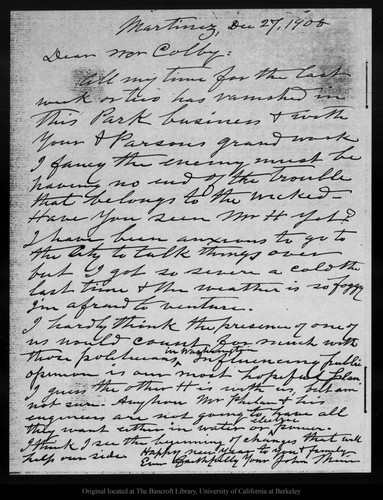 Martinez, Dec 27, 1908
Dear Mr Colby:
All my time for the last
week or two has vanished in
this Park business & with
Your & Parsons grand work
I fancy the enemy must be
having no end of the trouble
that belongs to the wicked.
Have You seen Mr H Yet?
I have been anxious to go to
the City to talk things over
but I got so severe a cold the
last time & the weather is so foggy
I'm afraid to venture.
I hardly think the presence of one of
us would count for much with
those politicians in Washington. Influencing public
opinion is our most hopeful plan
I guess the other H is with us but am
not sure. Anyhow Mr Phelan & his
engineers are not going to have all
they want either in water or electric power.
I think I see the beginning of changes that will
help our side. Happy new Year to you & family
Ever faithfully Your John Muir
Original located at The Bancroft Library, University of California at Berkeley